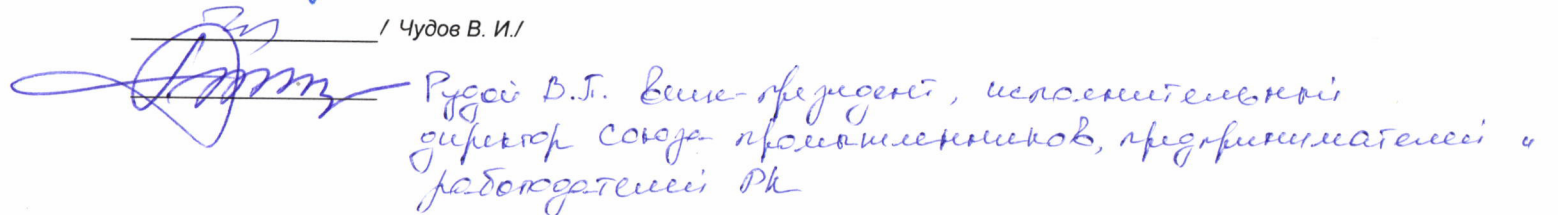 / Чудов В. И./
Рудой В.П. вице-президент, исполнительный
директор союза промышленников, предпринимателей и
работодателей РК